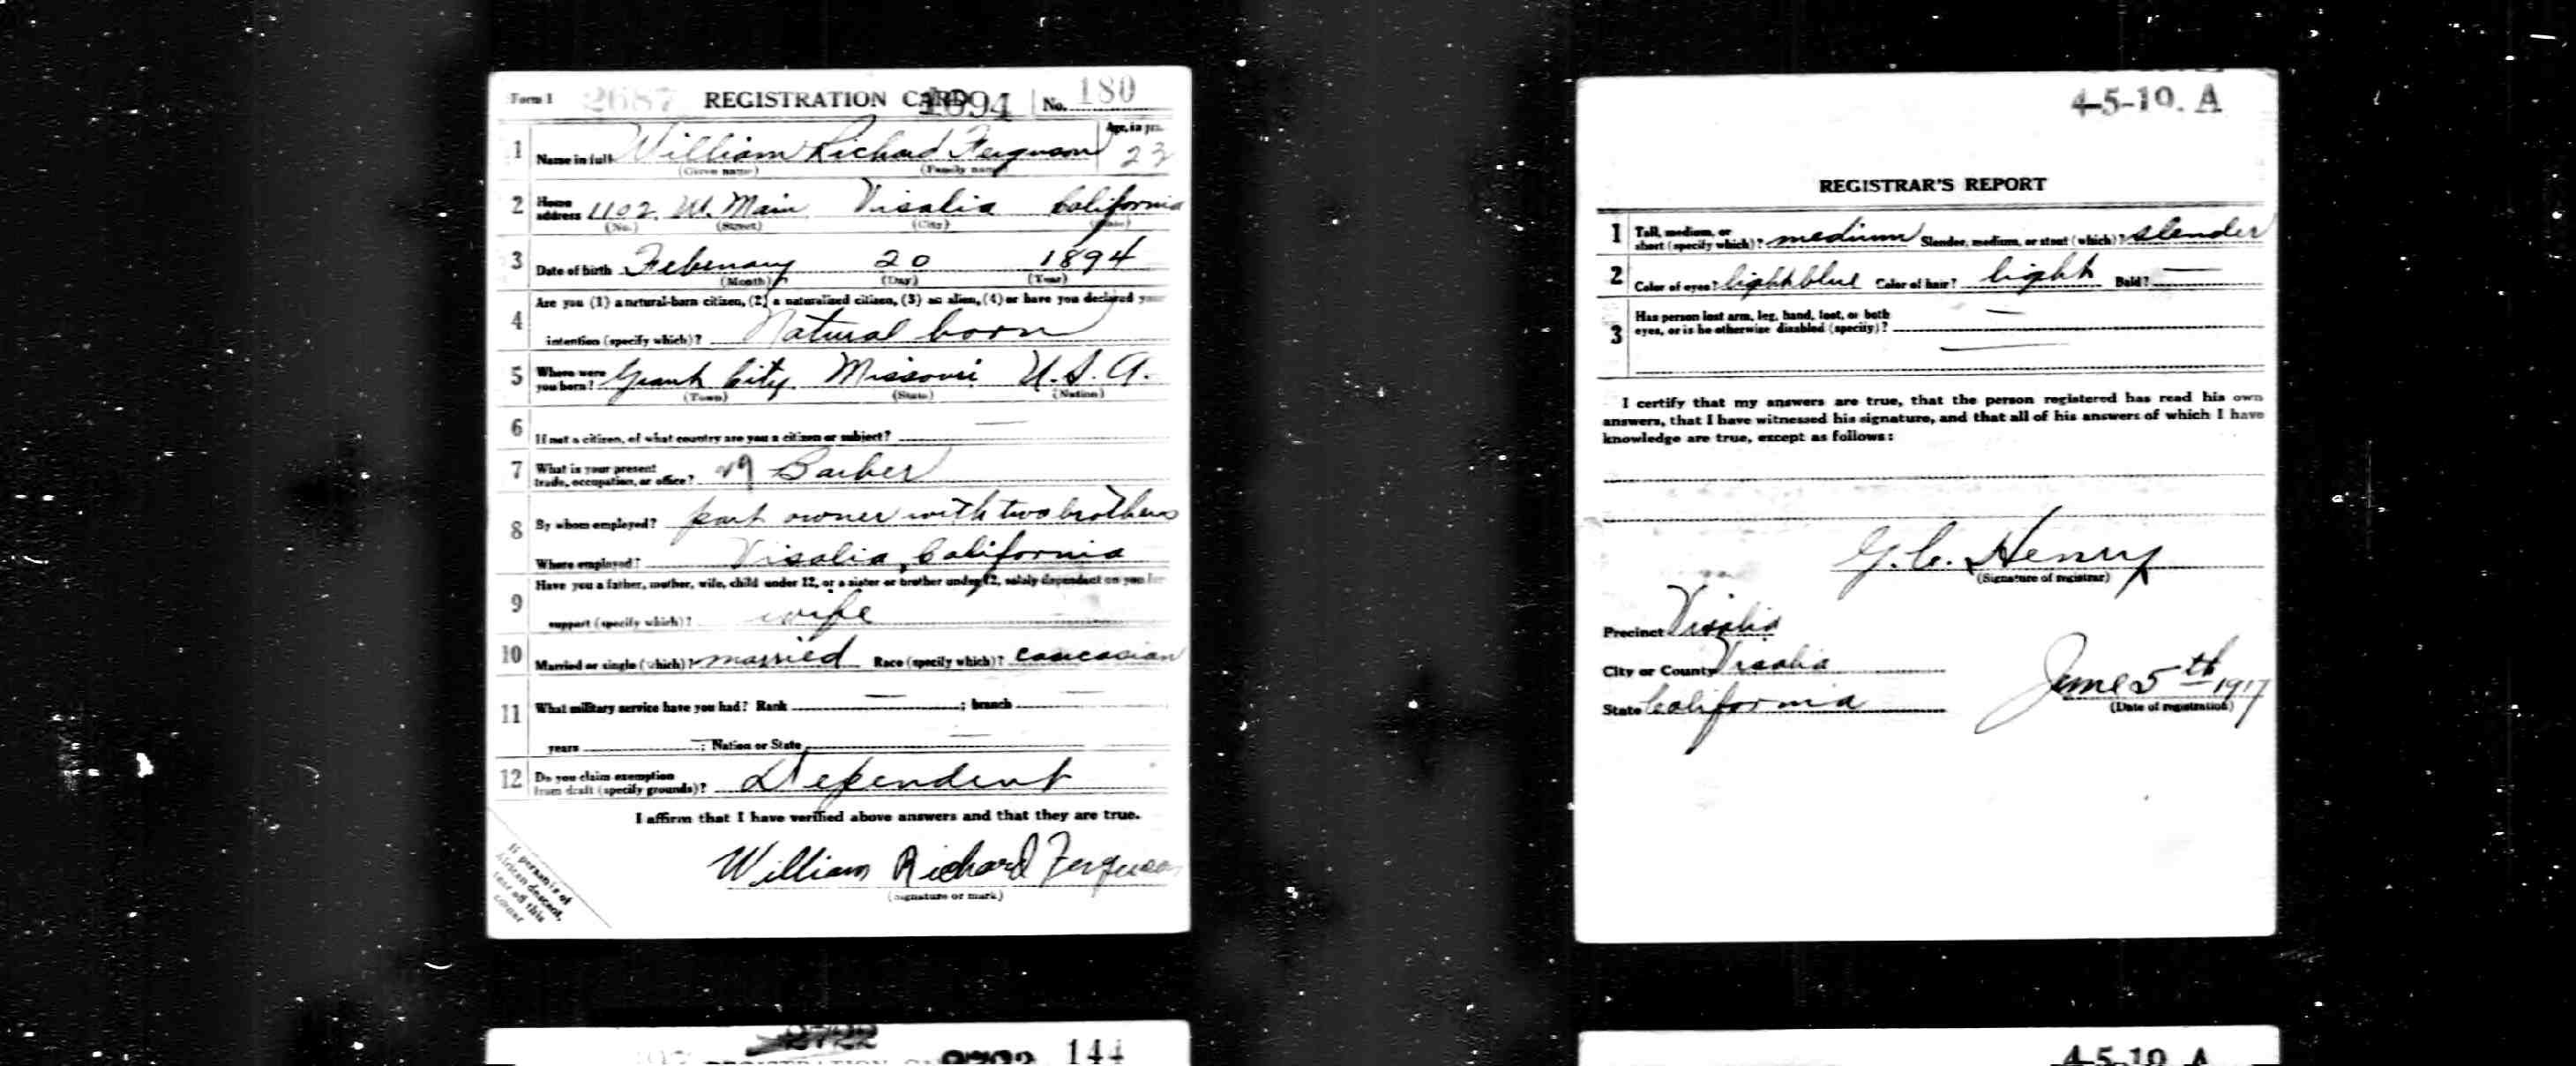 Form 1 2687 REGISTRATION CARD 1094 No. 180
1 Name in full William Richard Ferguson Age, in yrs. 23
(Given name) (Family name)
2 Home address 1102 W. Main Visalia California
(No.) (Street) (City) (State)
3 Date of birth Febenary 20 1894
(Month) (Day) (Year)
Are you (1) a natural-born citizen, (2) a naturalized citizen, (3) an alien, (4) or have you declared your
4 intention (specify which)? Natural born
5 Where were you born? Grant City Missouri U.S.A.
(Town) (State) (Nation)
6 If not a citizen, of what country are you a citizen or subject? —
7 What is your present trade, occupation, or office? 19 Barber
8 By whom employed? part owner with two brothers
Where employed? Visalia, California
Have you a father, mother, wife, child under 12, or a sister or brother under 12, solely dependent on you for
9 support (specify which)? wife
10 Married or single (which)? married Race (specify which)? caucasian
11 What military service have you had? Rank — ; branch —
years ; Nation or State —
12 Do you claim exemption from draft (specify grounds)? Dependent
I affirm that I have verified above answers and that they are true.
William Richard Ferguson
(Signature or mark)
If person is of
African descent,
tear off this
corner
4-5-19. A
REGISTRAR'S REPORT
1 Tall, medium, or short (specify which)? medium Slender, medium, or stout (which)? slender
2 Color of eyes? light blue Color of hair? light Bald? —
3 Has person lost arm, leg, hand, foot, or both
eyes, or is he otherwise disabled (specify)? —
I certify that my answers are true, that the person registered has read his own
answers, that I have witnessed his signature, and that all of his answers of which I have
knowledge are true, except as follows:
G.C. Henry
(Signature of registrar)
Precinct Visalia
City or County Visalia
State California
June 5th 1917
(Date of registration)
144
4-5-19 A